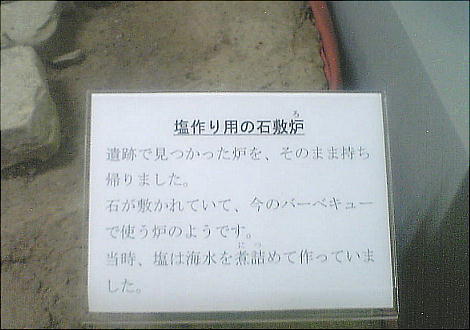 塩作り用の石敷炉
遺跡で見つかった炉を、そのまま持ち
帰りました。
石が敷かれていて、今のバーベキュー
で使う炉のようです。
当時、塩は海水を煮詰めて作っていま
した。